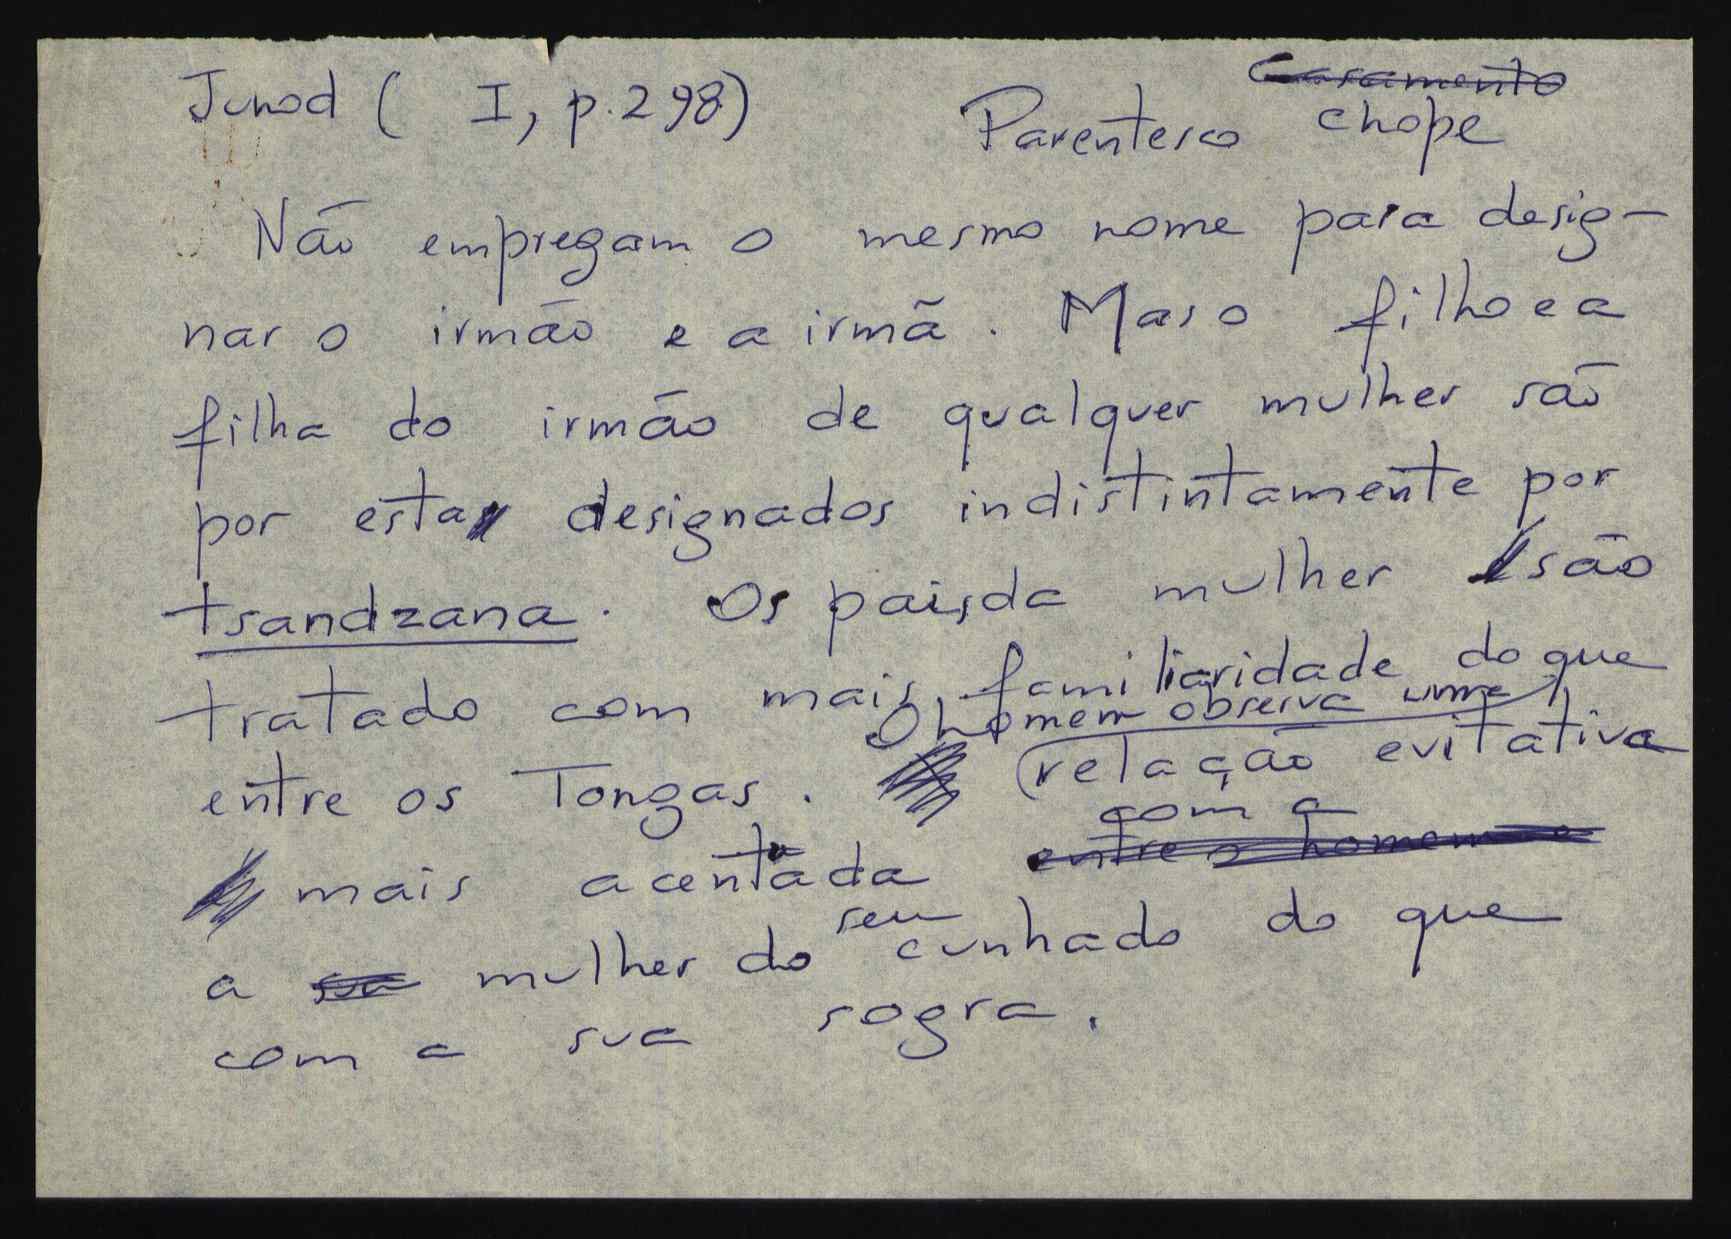 Junod ( I, p. 298)
Casamento
Parentesco chope
Não empregam o mesmo nome para desig-
nar o irmão e a irmã. Mas o filho e a
filha do irmão de qualquer mulher são
por esta designados indistintamente por
tsandzana. Os pais da mulher são
tratado com mais familiaridade do que
entre os Tongas. O homem observa uma
relação evitativa
mais acentuada com a
entre o homem e
a sua mulher do seu cunhado do que
com a sua sogra.